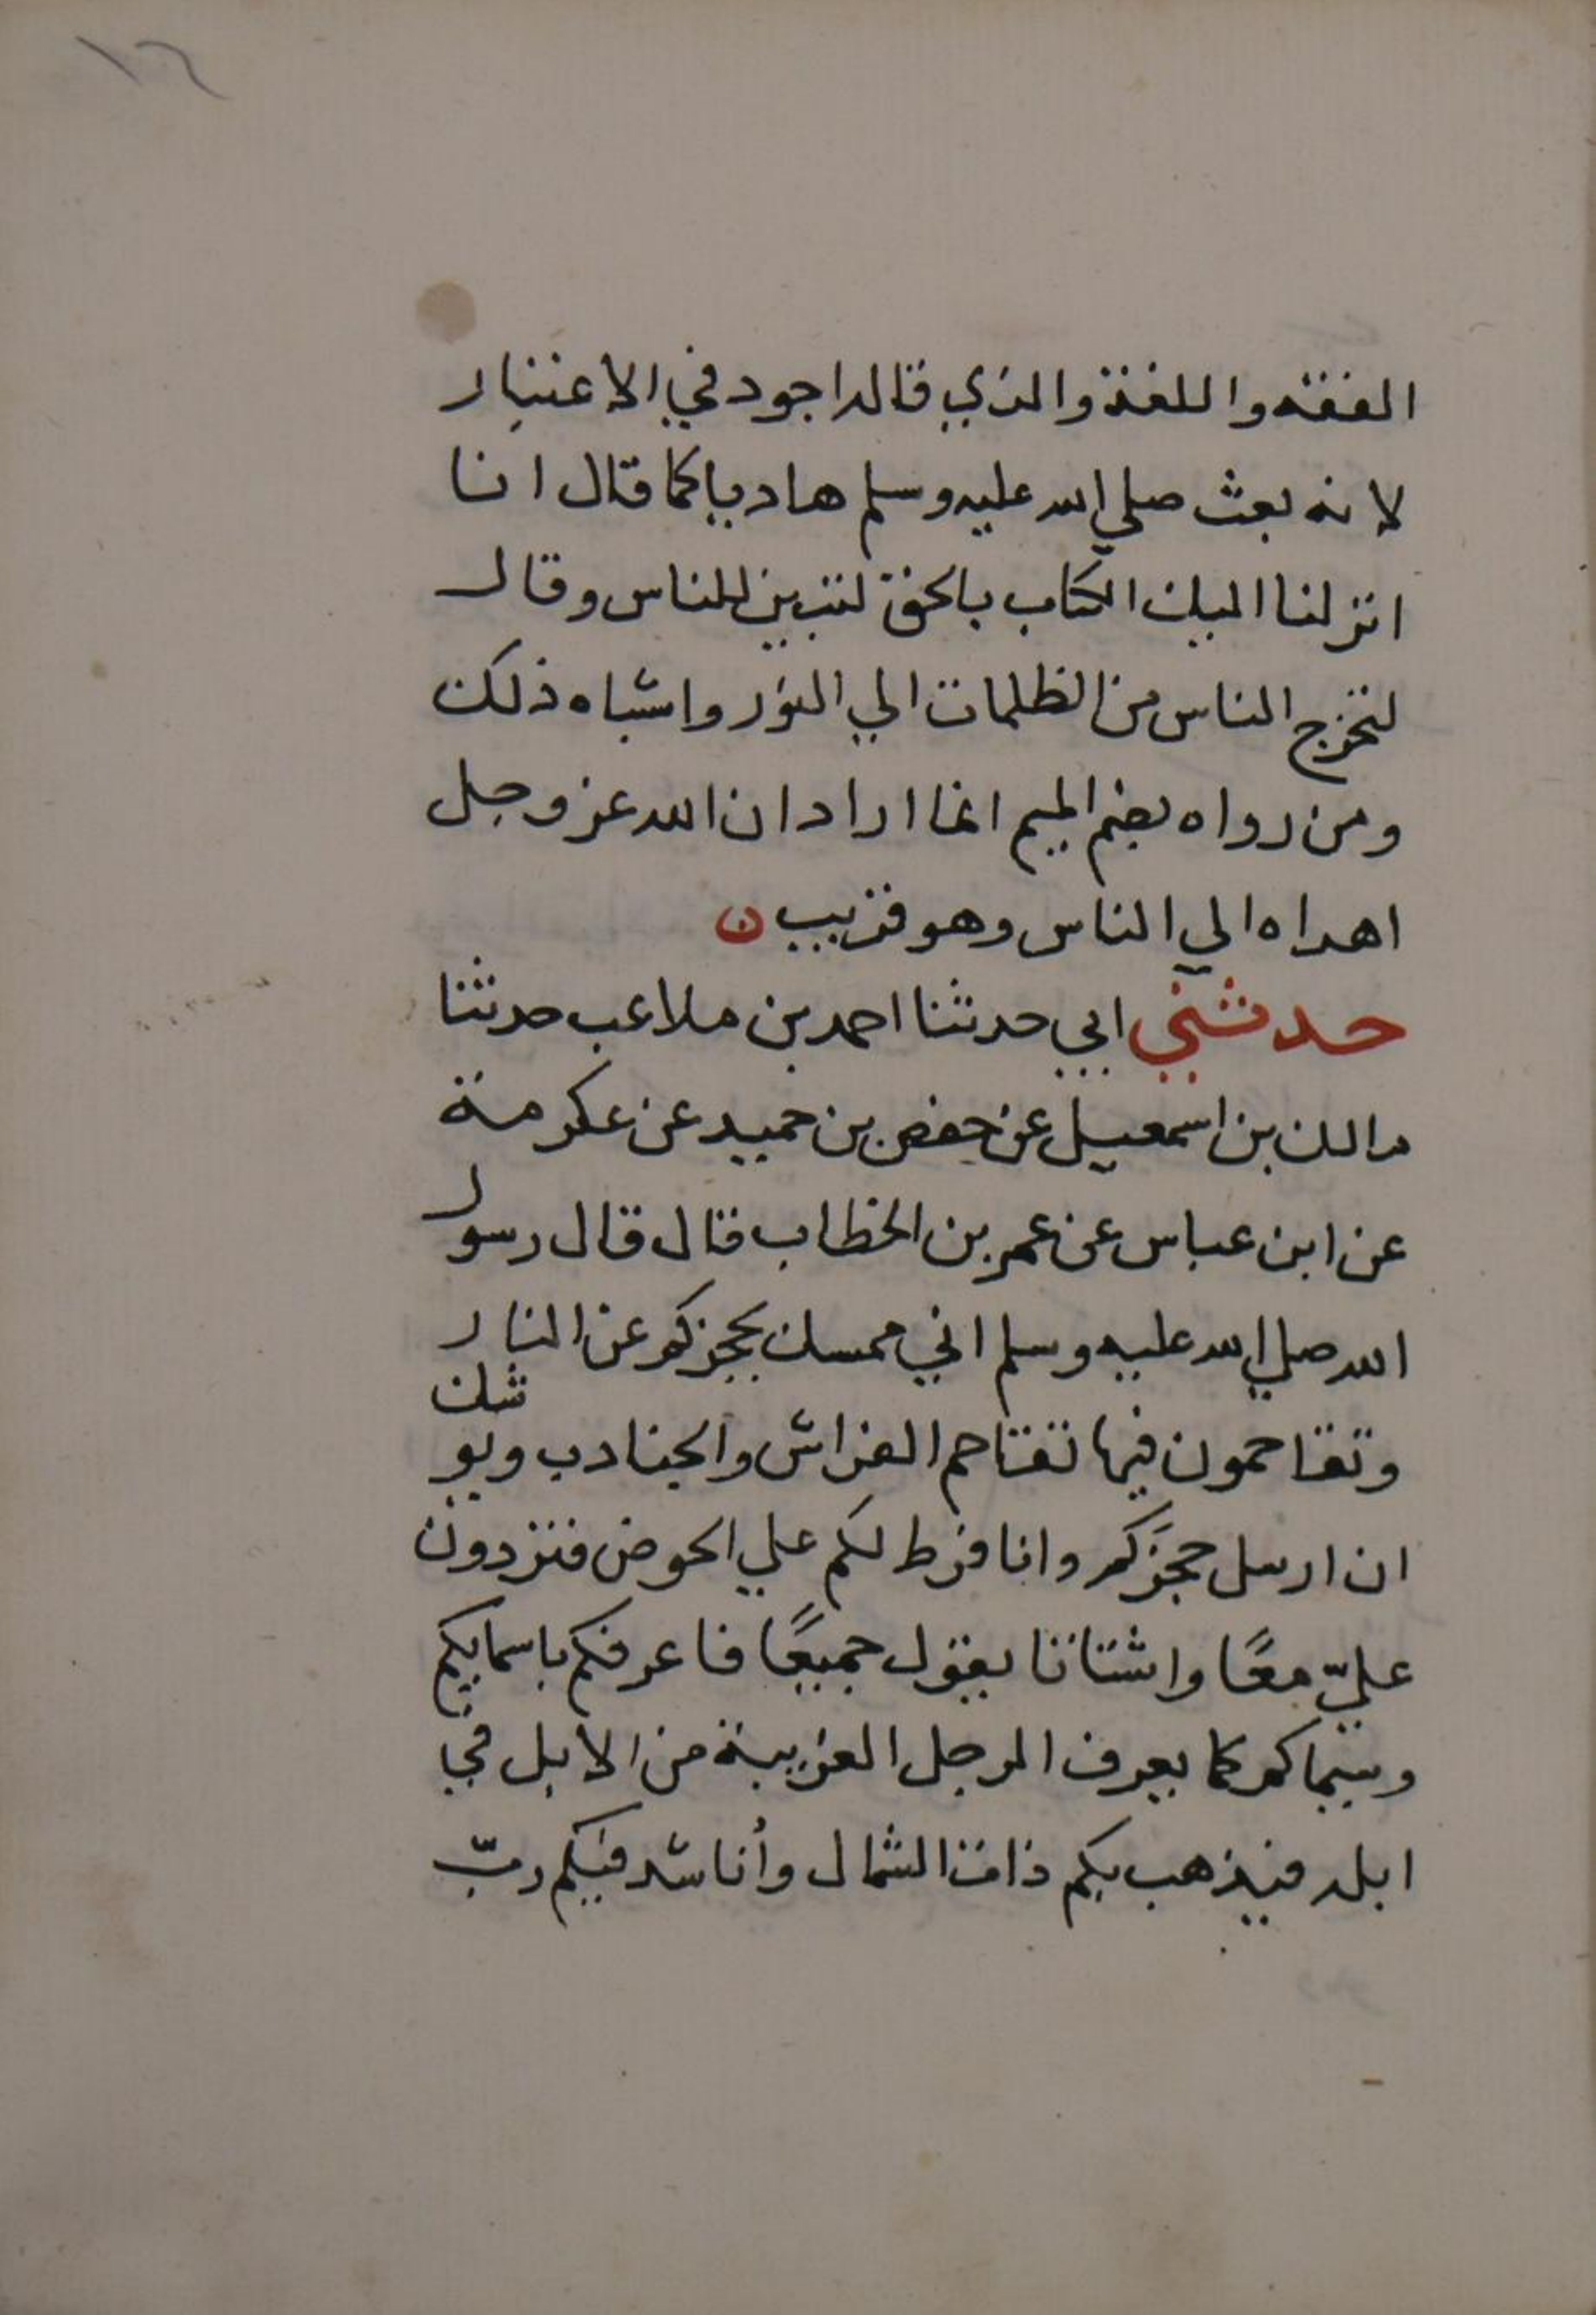 ١٦
الفقه واللغة والذي قاله اجود في الاعتبار
لانه بعث صلي الله عليه وسلم هاديا كما قال انا
انزلنا اليك الكتاب بالحق لتبين للناس وقال
لتخرج الناس من الظلمات الي النور واشباه ذلك
ومن رواه بضم الميم انما اراد ان الله عز وجل
اهداه الي الناس وهو قريب ن
حدثني ابي حدثنا احمد بن ملاعب حدثنا
مالك بن اسمعيل عن حفص بن حميد عن عكرمة
عن ابن عباس عن عمر بن الخطاب قال قال رسول
الله صلي الله عليه وسلم اني ممسك بحجزكم عن النار
وتقاحمون فيها تقاحم الفراش والجنادب ويوشك
ان ارسل حجزكم وانا فرط لكم علي الحوض فتردون
عليّ معًا واشتاتا يقول جميعًا فاعرفكم باسمايكم
وسيماكم كما يعرف الرجل الغريبة من الابل في
ابله فيذهب بكم ذات الشمال وأناشد فيكم ربّ